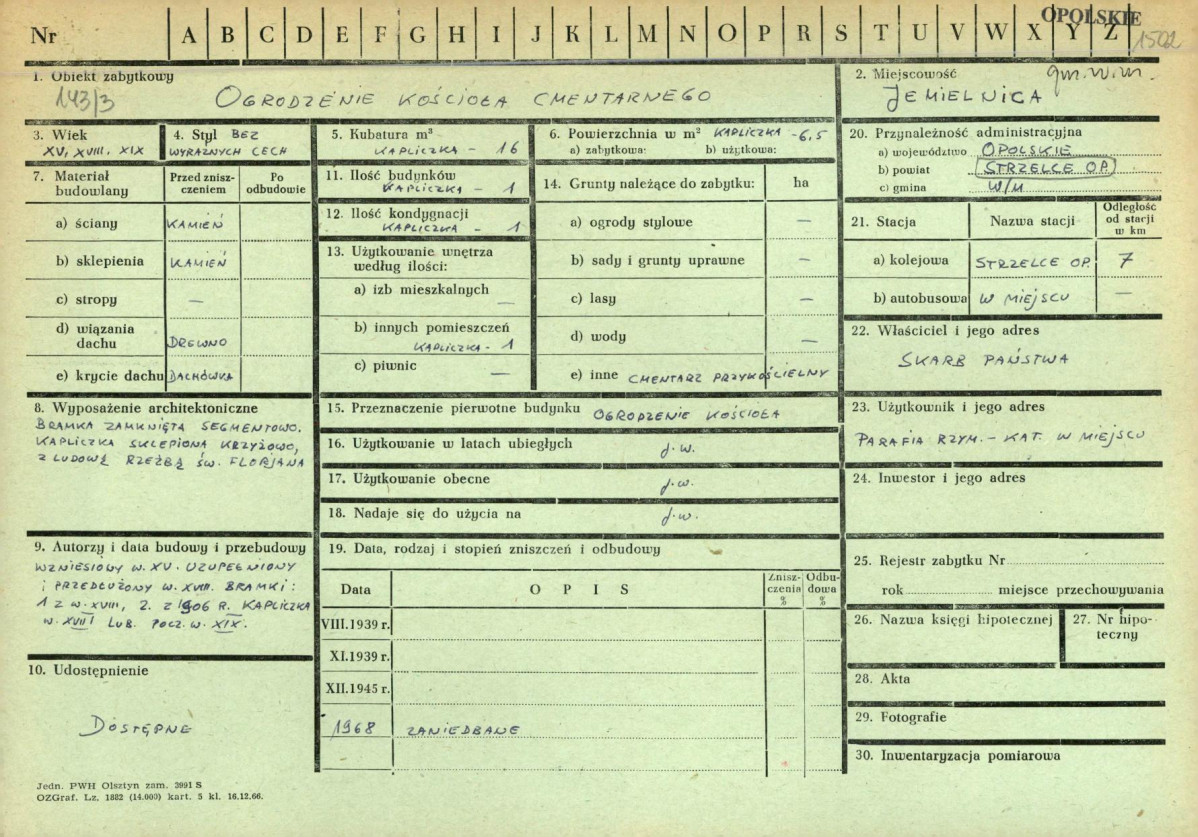 OPOLSKIE
1502
Nr A B C D E F G H I J K L M N O P R S T U V W X Y Z
1. Obiekt zabytkowy
143/3
OGRODZENIE KOŚCIOŁA CMENTARNEGO
2. Miejscowość gm.w.m.
JEMIELNICA
3. Wiek
XV, XVIII, XIX
4. Styl BEZ
WYRAŹNYCH CECH
5. Kubatura m³
KAPLICZKA – 16
6. Powierzchnia w m² KAPLICZKA - 6,5
a) zabytkowa: b) użytkowa:
7. Materiał budowlany
Przed zniszczeniem
Po odbudowie
a) ściany KAMIEŃ
b) sklepienia KAMIEŃ
c) stropy —
d) wiązania dachu DREWNO
e) krycie dachu DACHÓWKA
8. Wyposażenie architektoniczne
BRAMKA ZAMKNIĘTA SEGMENTOWO.
KAPLICZKA SKLEPIONA KRZYŻOWO,
Z LUDOWĄ RZEŹBĄ ŚW. FLORJANA
9. Autorzy i data budowy i przebudowy
WZNIESIONY W. XV. UZUPEŁNIONY
i PRZEDŁUŻONY W. XVIII. BRAMKI:
1 Z W. XVIII, 2. Z 1906 R. KAPLICZKA
W. XVIII LUB. POCZ. W. XIX.
10. Udostępnienie
DOSTĘPNE
11. Ilość budynków
KAPLICZKA – 1
12. Ilość kondygnacji
KAPLICZKA – 1
13. Użytkowanie wnętrza
według ilości:
a) izb mieszkalnych
—
b) innych pomieszczeń
KAPLICZKA - 1
c) piwnic —
14. Grunty należące do zabytku: ha
a) ogrody stylowe —
b) sady i grunty uprawne —
c) lasy —
d) wody —
e) inne CMENTARZ PRZYKOŚCIELNY
15. Przeznaczenie pierwotne budynku OGRODZENIE KOŚCIOŁA
16. Użytkowanie w latach ubiegłych j.w.
17. Użytkowanie obecne j.w.
18. Nadaje się do użycia na j.w.
19. Data, rodzaj i stopień zniszczeń i odbudowy
Data O P I S Zniszczenia % Odbudowa %
VIII.1939 r.
XI.1939 r.
XII.1945 r.
1968 ZANIEDBANE
20. Przynależność administracyjna
a) województwo OPOLSKIE
b) powiat STRZELCE OP.
c) gmina W/M
21. Stacja Nazwa stacji Odległość od stacji w km
a) kolejowa STRZELCE OP. 7
b) autobusowa W MIEJSCU —
22. Właściciel i jego adres
SKARB PAŃSTWA
23. Użytkownik i jego adres
PARAFIA RZYM. – KAT. W MIEJSCU
24. Inwestor i jego adres
25. Rejestr zabytku Nr
rok miejsce przechowywania
26. Nazwa księgi hipotecznej
27. Nr hipoteczny
28. Akta
29. Fotografie
30. Inwentaryzacja pomiarowa
Jedn. PWH Olsztyn zam. 3991 S
OZGraf. Lz. 1882 (14.000) kart. 5 kl. 16.12.66.